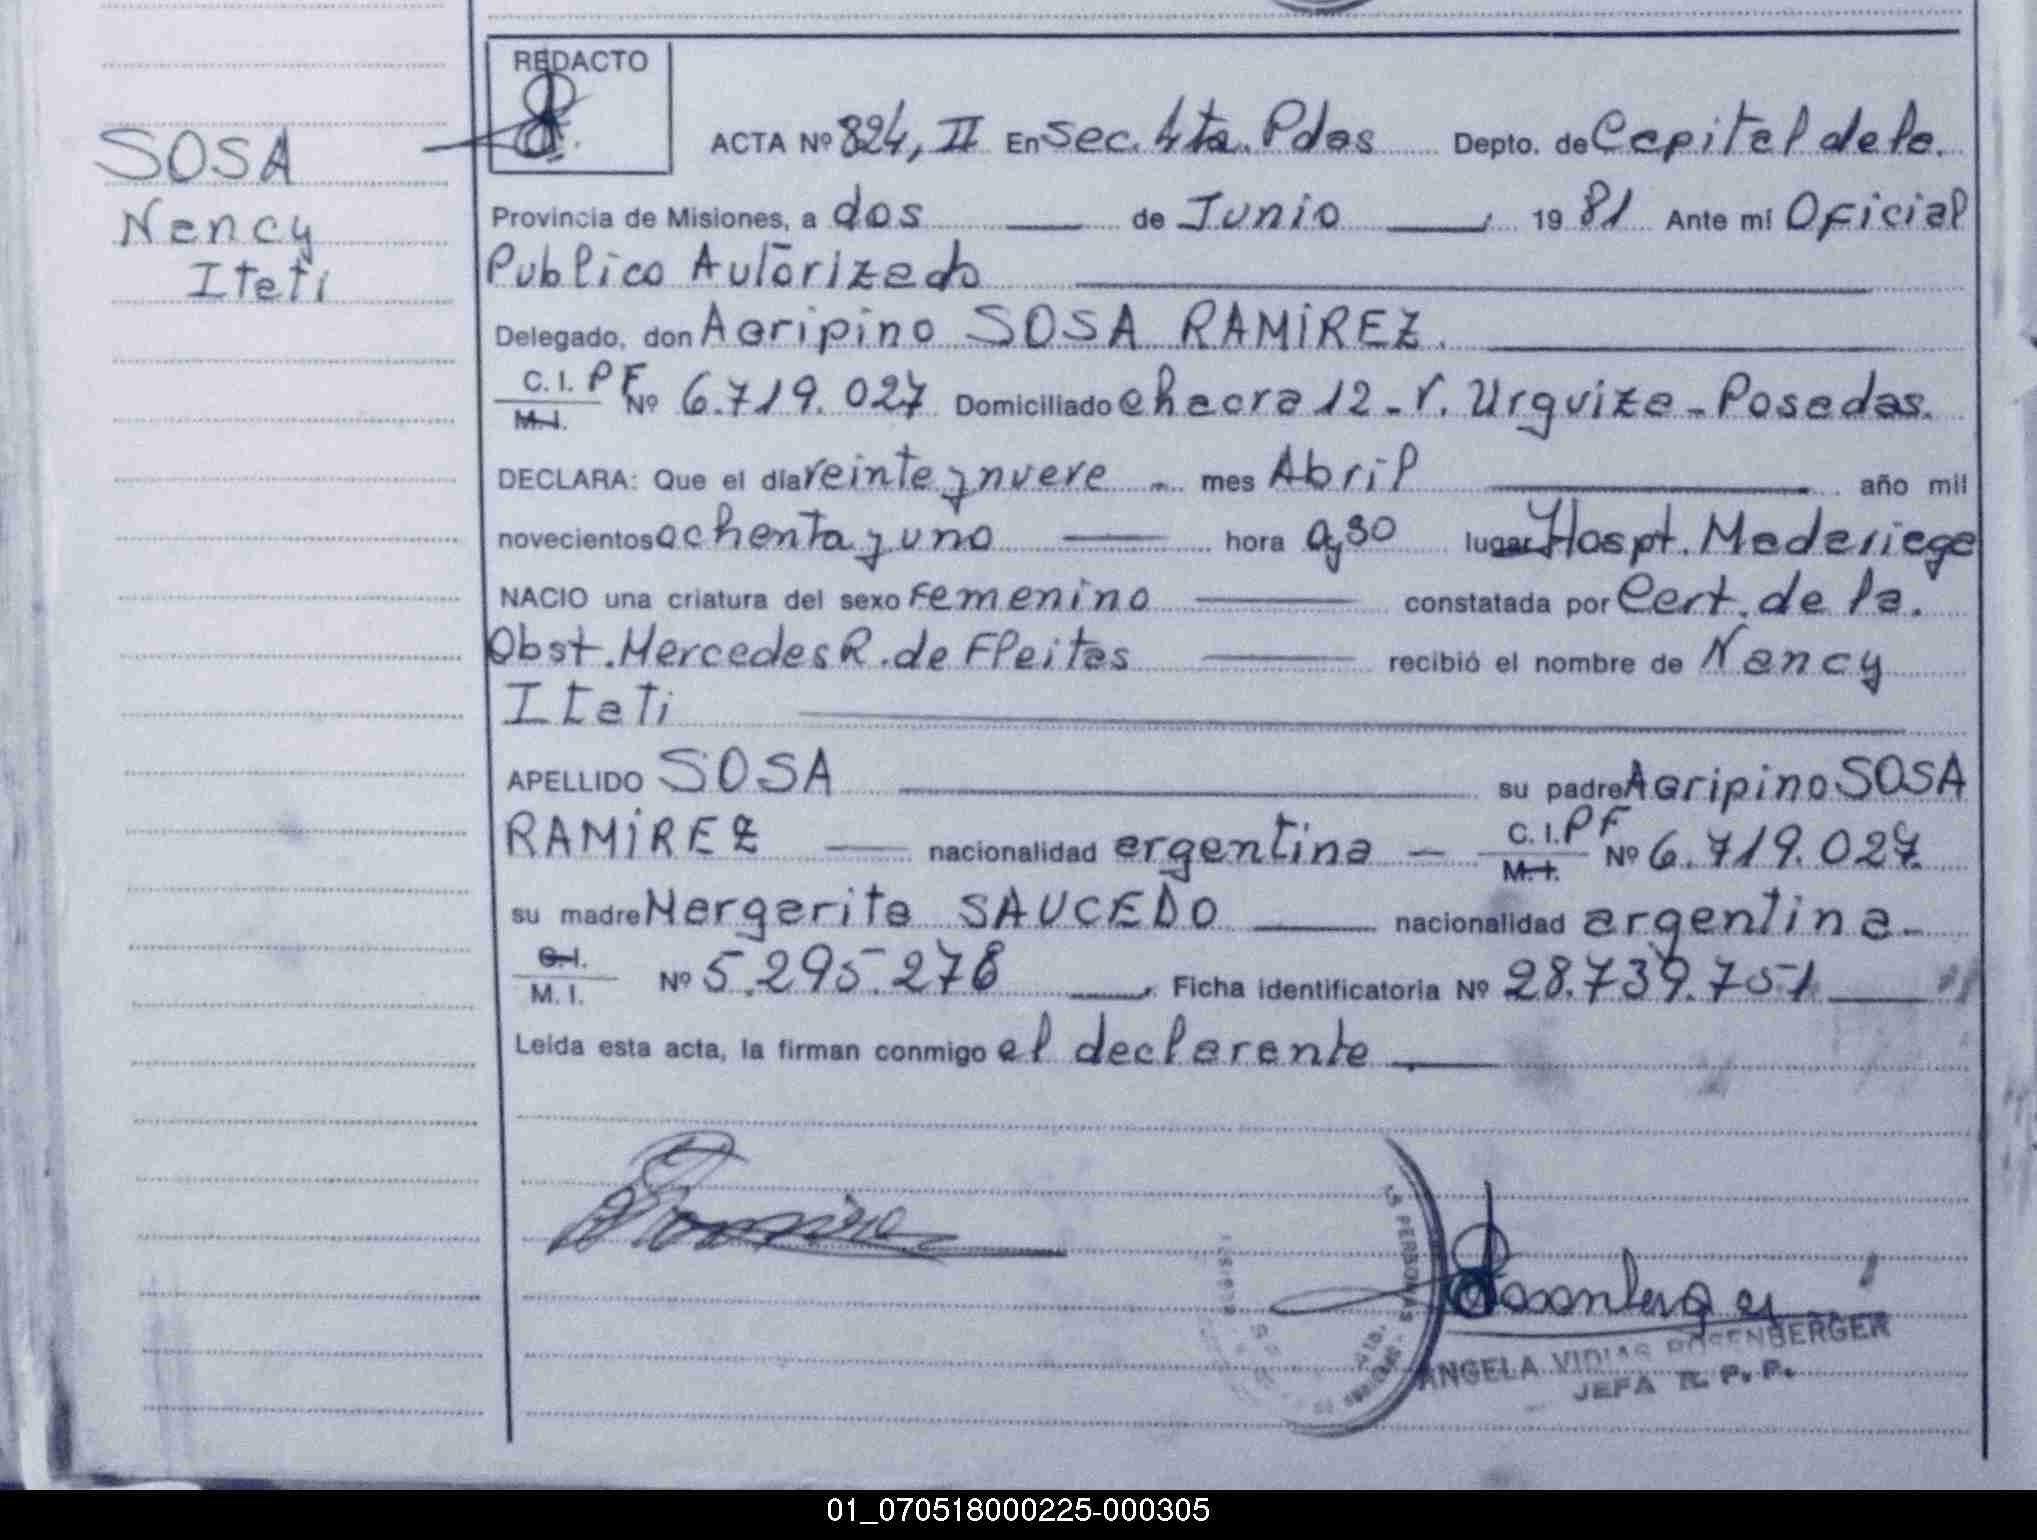 REDACTO
SOSA
Nancy
Itatí
ACTA Nº 824, II En Sec. 4ta. Pdas Depto. de Capital de la.
Provincia de Misiones, a dos de Junio 1981 Ante mí Oficial
Publico Autorizado
Delegado, don Agripino SOSA RAMÍREZ.
C. I. PF
M. I. Nº 6.719.027 Domiciliado Chacra 12 - V. Urquiza - Posadas.
DECLARA: Que el día veinte y nueve mes Abril año mil
novecientos ochenta y uno hora 0,30 lugar Hospt. Madariaga
NACIO una criatura del sexo femenino constatada por Cert. de la.
Obst. Mercedes R. de Freitas recibió el nombre de Nancy
Itatí
APELLIDO SOSA su padre Agripino SOSA
RAMÍREZ nacionalidad argentina C. I. PF
M. I. Nº 6.719.027
su madre Margarita SAUCEDO nacionalidad argentina
C. I.
M. I. Nº 5.295.276 Ficha identificatoria Nº 28.739.751
Leída esta acta, la firman conmigo el declarante
LAS PERSONAS
ANGELA ROSENBERGER
JEFA R. P. P.
01_070518000225-000305